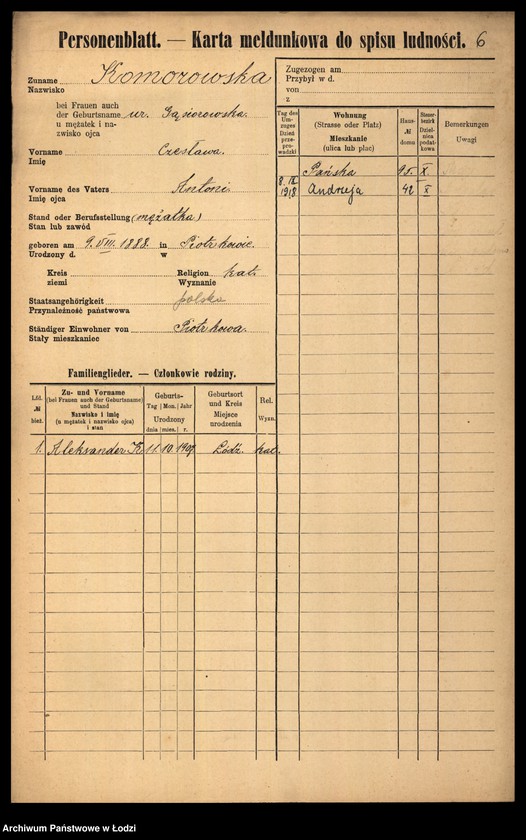 Personenblatt. — Karta meldunkowa do spisu ludności. 6
Zuname Komorowska
Nazwisko
bei Frauen auch
der Geburtsname ur. Gąsiorowska.
u mężatek i na-
zwisko ojca
Vorname Czesława.
Imię
Vorname des Vaters Antoni
Imię ojca
Stand oder Berufsstellung (mężatka)
Stan lub zawód
geboren am 9. VIII. 1888. in Piotrkowie.
Urodzony d. w
Kreis Religion kat.
ziemi Wyznanie
Staatsangehörigkeit polska
Przynależność państwowa
Ständiger Einwohner von Piotrkowa.
Stały mieszkaniec
Zugezogen am
Przybył w d.
von
z
Tag des Um-
zuges
Dzień
prze-
prowadzki
Wohnung
(Strasse oder Platz)
Mieszkanie
(ulica lub plac)
Haus-
№
domu
Steuer-
bezirk
Dziel-
nica
podat-
kowa
Bemerkungen
Uwagi
Pańska 95. X.
8. IX.
1918 Andrzeja 42 X
Familienglieder. — Członkowie rodziny.
Lfd.
№
bież.
Zu- und Vorname
(bei Frauen auch der Geburtsname)
und Stand
Nazwisko i imię
(u mężatek i nazwisko ojca)
i stan
Geburts-
Tag Mon. Jahr
Urodzony
dnia mies. r.
Geburtsort
und Kreis
Miejsce
urodzenia
Rel.
Wyzn.
1. Aleksander K. 11. 10. 1907. Łódź. kat.
Archiwum Państwowe w Łodzi